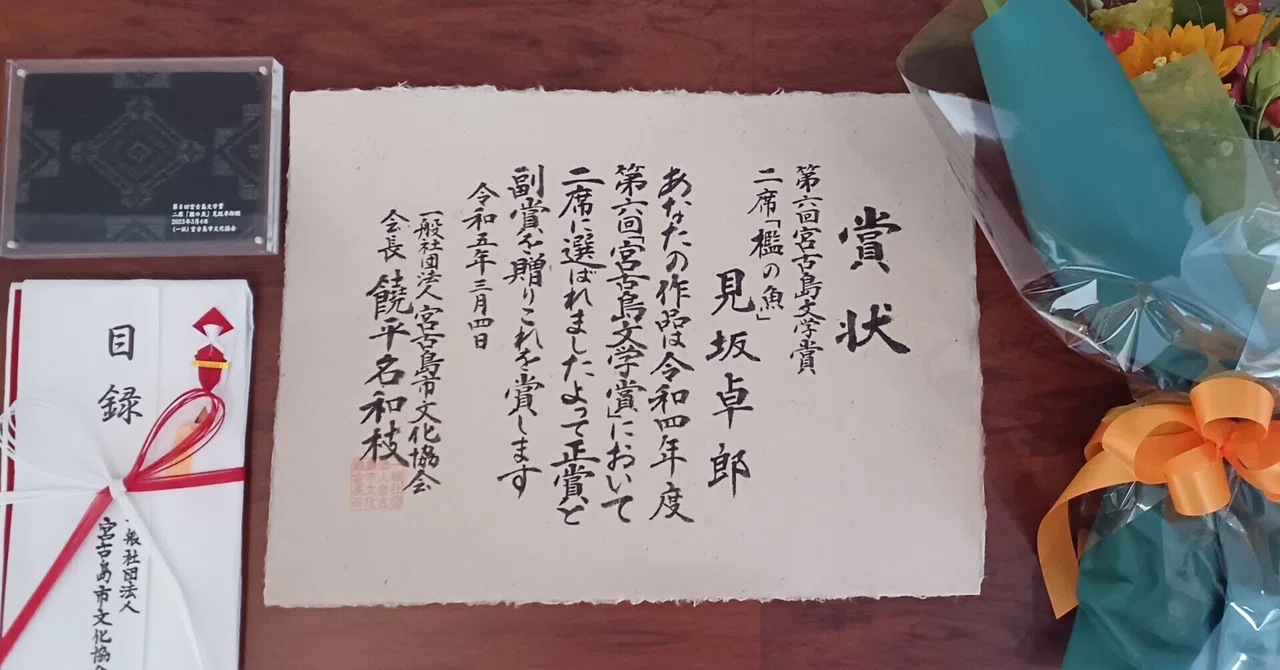 賞状
第六回宮古島文学賞
二席「檻の魚」
見坂卓郎
あなたの作品は令和四年度
第六回「宮古島文学賞」において
二席に選ばれましたよって正賞と
副賞を贈りこれを賞します
令和五年三月四日
一般社団法人宮古島市文化協会
会長 饒平名和枝
第6回宮古島文学賞
二席「檻の魚」見坂卓郎殿
2023年3月4日
(一社)宮古島市文化協会
目録
一般社団法人
宮古島市文化協会